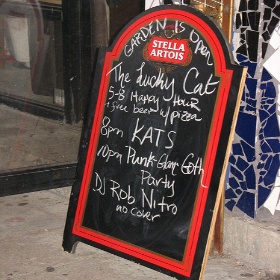 GARDEN IS OPEN
STELLA
ARTOIS
The Lucky Cat
5-8 Happy Hour
+ free beer w/pizza
8pm KATS
10pm Punk-Glam-Goth
Party
DJ Rob Nitro
no cover